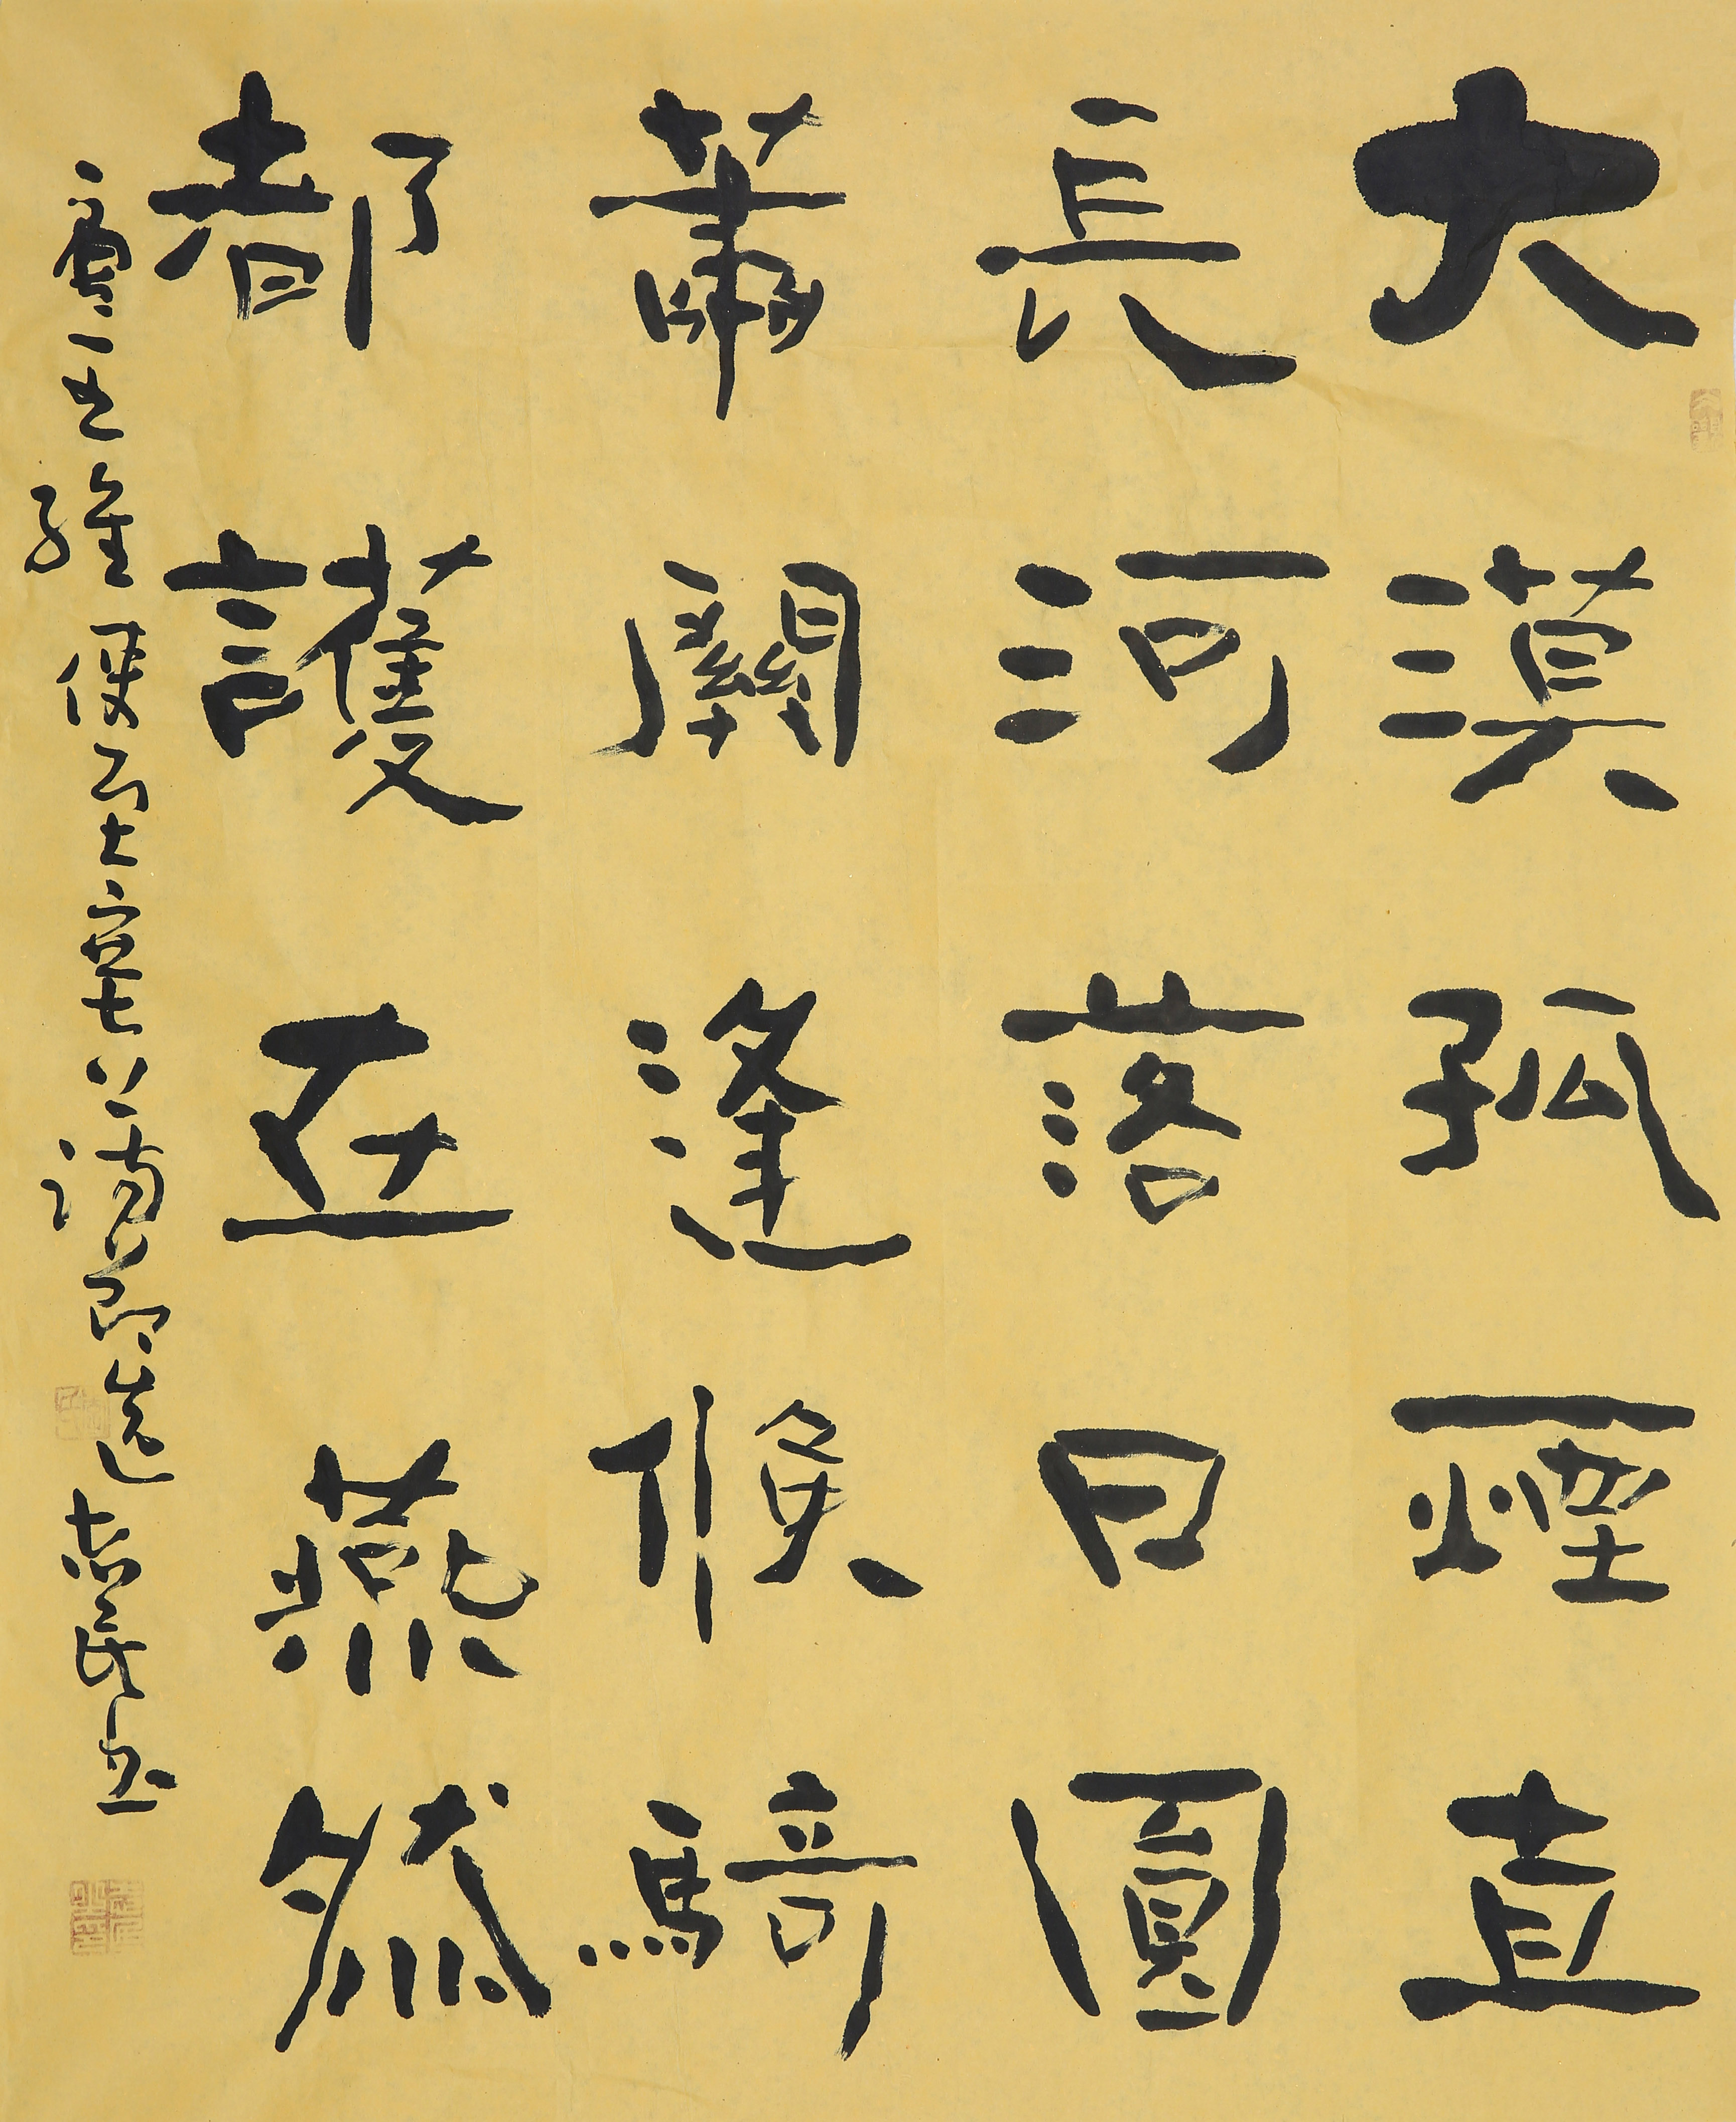 大漠孤煙直
長河落日圓
蕭關逢候騎
都護在燕然
唐王維使至塞上詩節選志民書